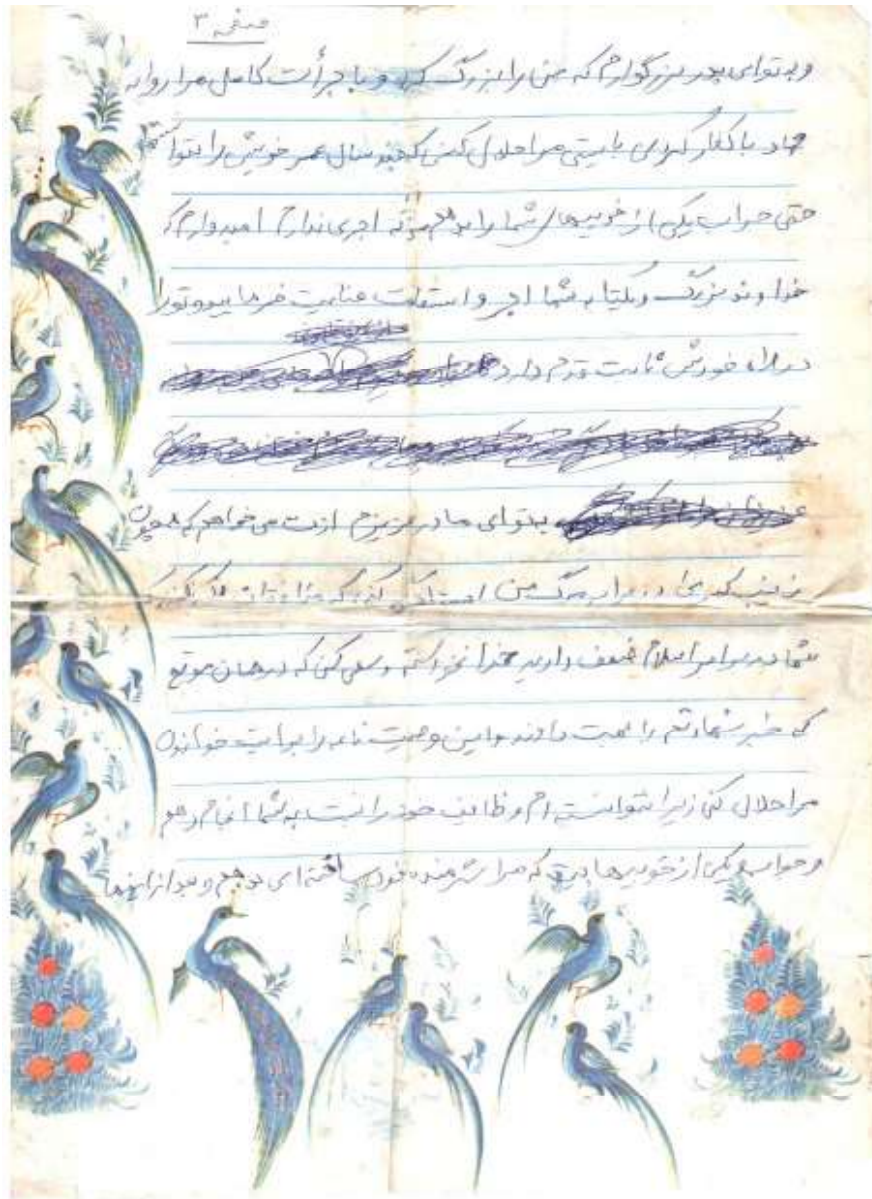 صفحه ۳
و به تو ای پدر بزرگوارم که من را بزرگ کرد و با جرأت کامل مرا روانه
جهاد با کفار کردی بایستی مرا حلال کنی که چند سال عمر خویش را نتوانستم
حتی جواب یکی از خوبیهای شما را بدهم البته اجری ندارم امیدوارم که
خداوند بزرگ و یکتا به شما اجر و استقامت عنایت فرماید و تو را
در راه خودش ثابت قدم دارد
به تو ای مادر عزیزم ازت می خواهم که همچون
زینب کبری در برابر مرگ من
شما در برابر اسلام ضعف دارید خدا نخواسته و سعی کن که در همان موقع
که خبر شهادتم را بهت دادند و این وصیت نامه را برایت خواندن
مرا حلال کنی زیرا نتوانسته ام وظایف خود را نسبت به شما انجام دهم
و جواب یکی از خوبیهایت که مرا شرمنده خود ساخته ای بدهم و بعد از اینها